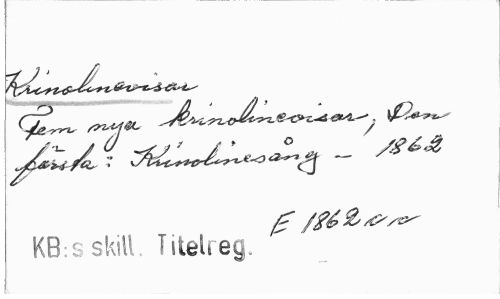 Krinolinevisar
Fem nya krinolinevisar, Den
första: Krinolinesång – 1862
E 1862
KB:s skill. Titelreg.